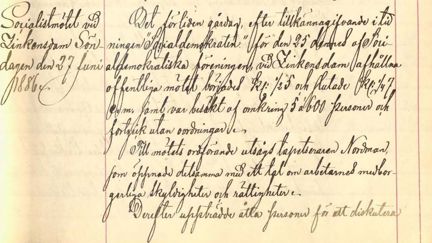 Socialistmötet vid
Zinkensdam Sön-
dagen den 27 Juni
1886.
Det förliden gårdag, efter tillkännagifvande i tid
ningen "Socialdemokraten" för den 25 dennes af Soci
aldemokratiska föreningen, vid Zinkensdam afhållna
offentliga mötet började kl. 1/2 5 och slutade kl. 1/4 7
e.m. samt var besökt af omkring 5 à 600 personer och
fortgick utan oordningar.
Till mötets ordförande utsågs tapetseraren Norman,
som öppnade detsamma med ett tal om arbetarnes medbor-
gerliga skyldigheter och rättigheter.
Derefter uppträdde åtta personer för att diskutera